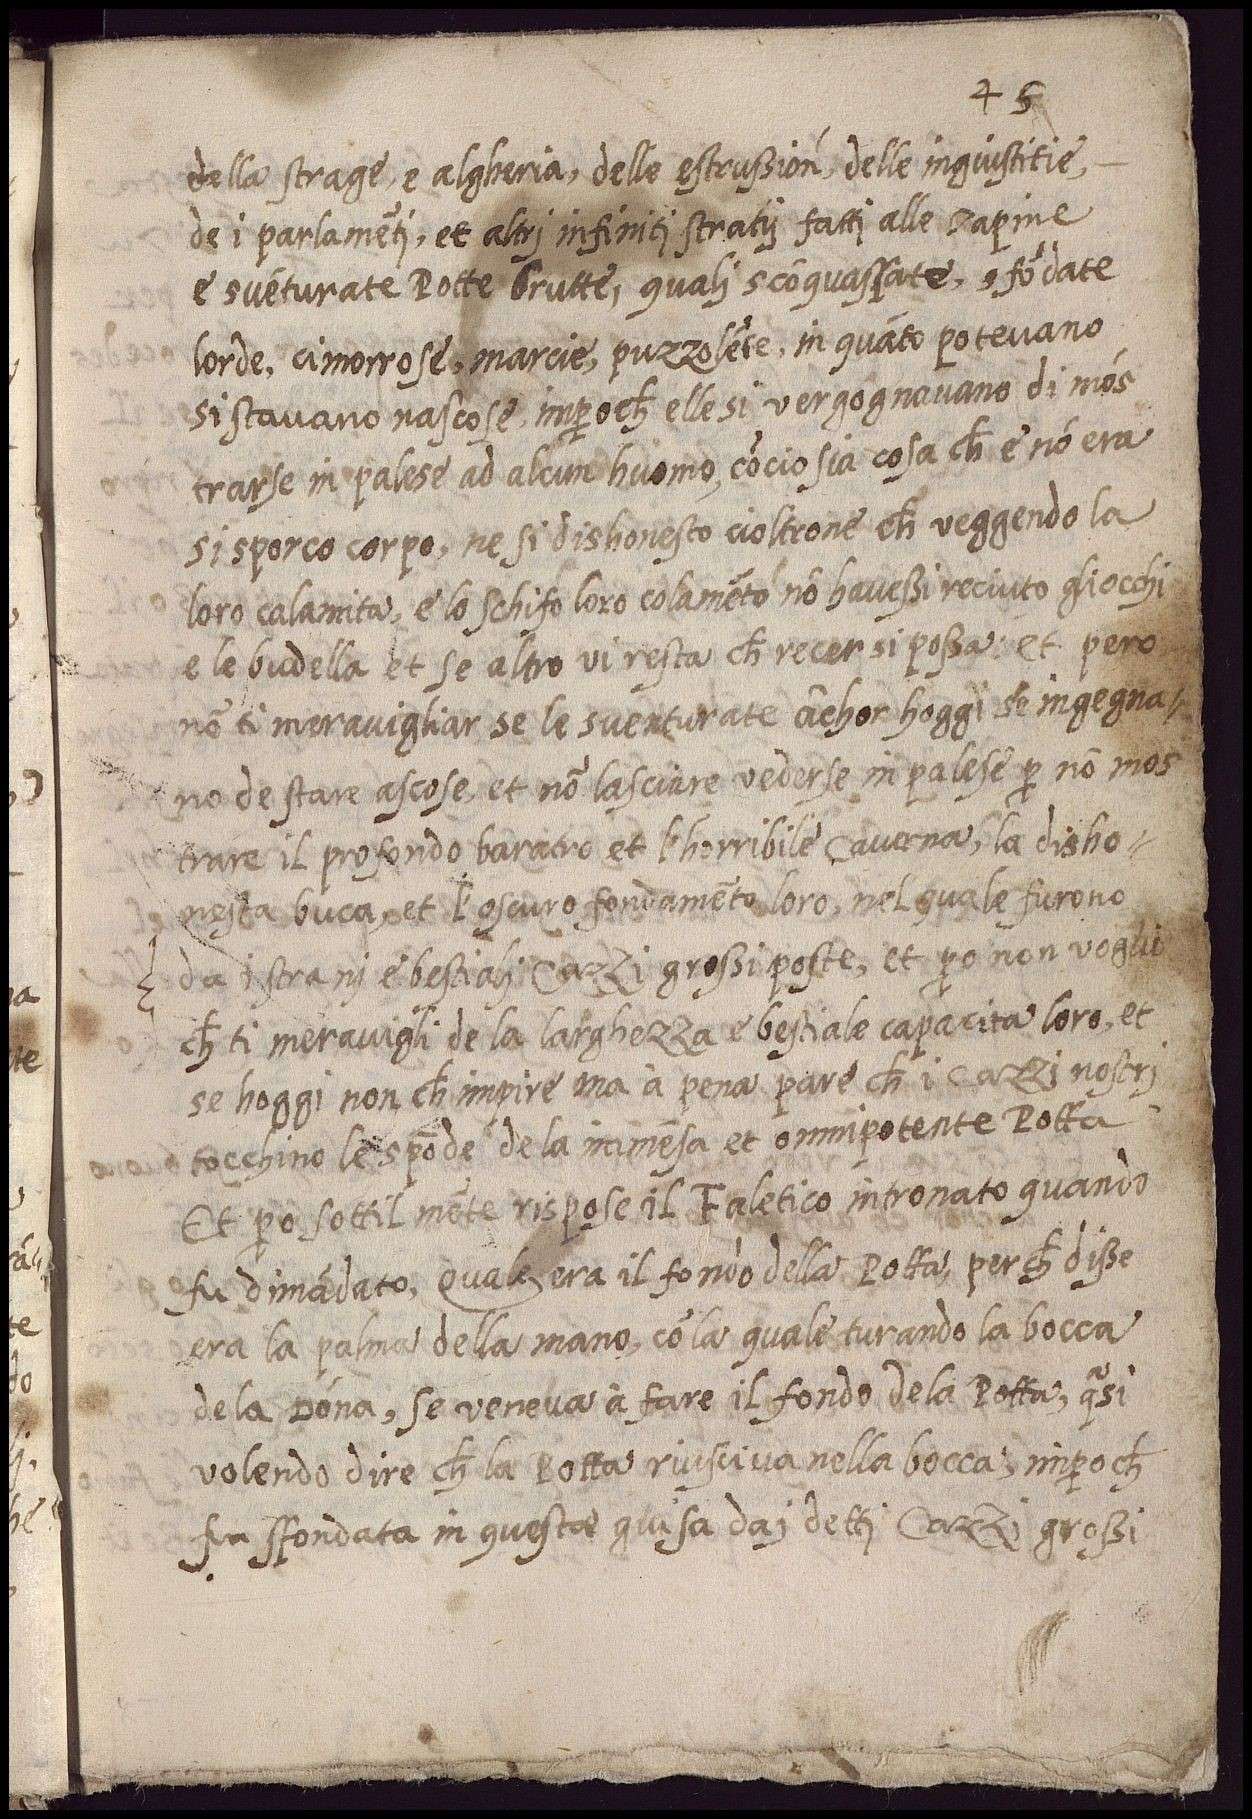 45
della strage, e algheria, delle estrußioń, delle ingiustitie,
de i parlamēti, et altrj infiniti stratij fatti alle tapine
e svēturate Potte brutte, qualj scōquassate, sfōdate
lorde, cimorrose, marcie, puzzolēte, in quāto potevano
si stavano nascose, imꝑoch̄ elle si vergognavano di mós
trarse in palese ad alcun huomo, cōciosia cosa ch̄ e nō era
si sporco corpo, ne si dishonesto cioltrone ch̄ veggendo la
loro calamita, e lo schifo loro colamēto nō haveßi reciuto gliocchi
e le budella et se altro vi resta ch̄ recer si poßa: et pero
nō ti meravigliar se le sventurate āchor hoggi se ingegna⸗
no de stare ascose, et nō lasciare vederse in palese ꝑ nō mos
trare il profondo baratro et l'horribile Caverna, la disho⸗
nesta buca, et l'oscuro fondamēto loro, nel quale furono
da istranj e bestialj Cazzi großi poste, et ꝑo non voglio
ch̄ ti meravigli de la larghezza e bestiale capacita loro, et
se hoggi non ch̄ impire ma à pena pare ch̄ i Cazzi nostrj
tocchino le spōde de la inmēsa et omnipotente Potta
Et ꝑo sottil mēte rispose il Faletico intronato quando
fu dimādato, Quale era il fondo della Potta, perch̄ diße
era la palma della mano, cō la quale turando la bocca
de la Dōna, se veneva à fare il fondo de la Potta, qᵃsi
volendo dire ch̄ la Potta riusciva nella bocca, imꝑoch̄
fu sfondata in questa guisa daj dettj Cazzi großi